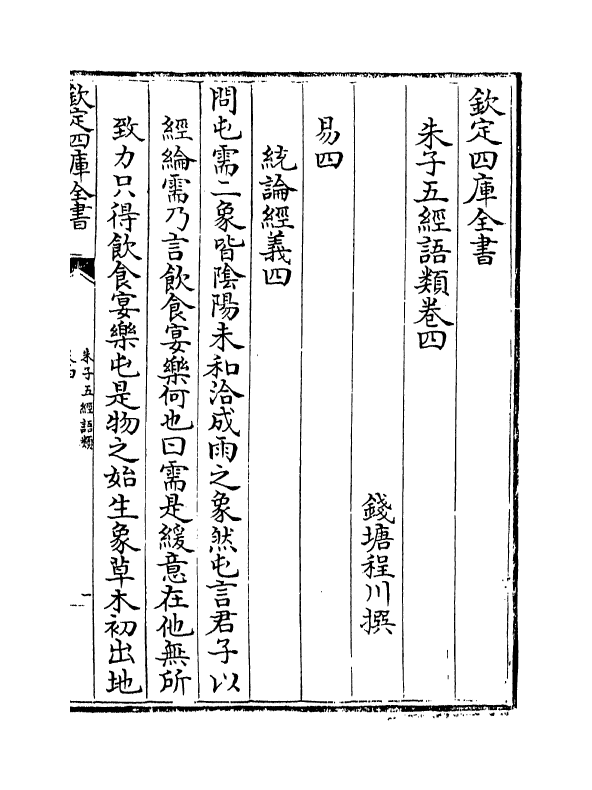 欽定四庫全書
朱子五經語類卷四
錢塘程川撰
易四
統論經義四
問屯需二象皆陰陽未和洽成雨之象然屯言君子以
經綸需乃言飲食宴樂何也曰需是緩意在他無所
致力只得飲食宴樂屯是物之始生象草木初出地
欽定四庫全書
朱子五經語類
一